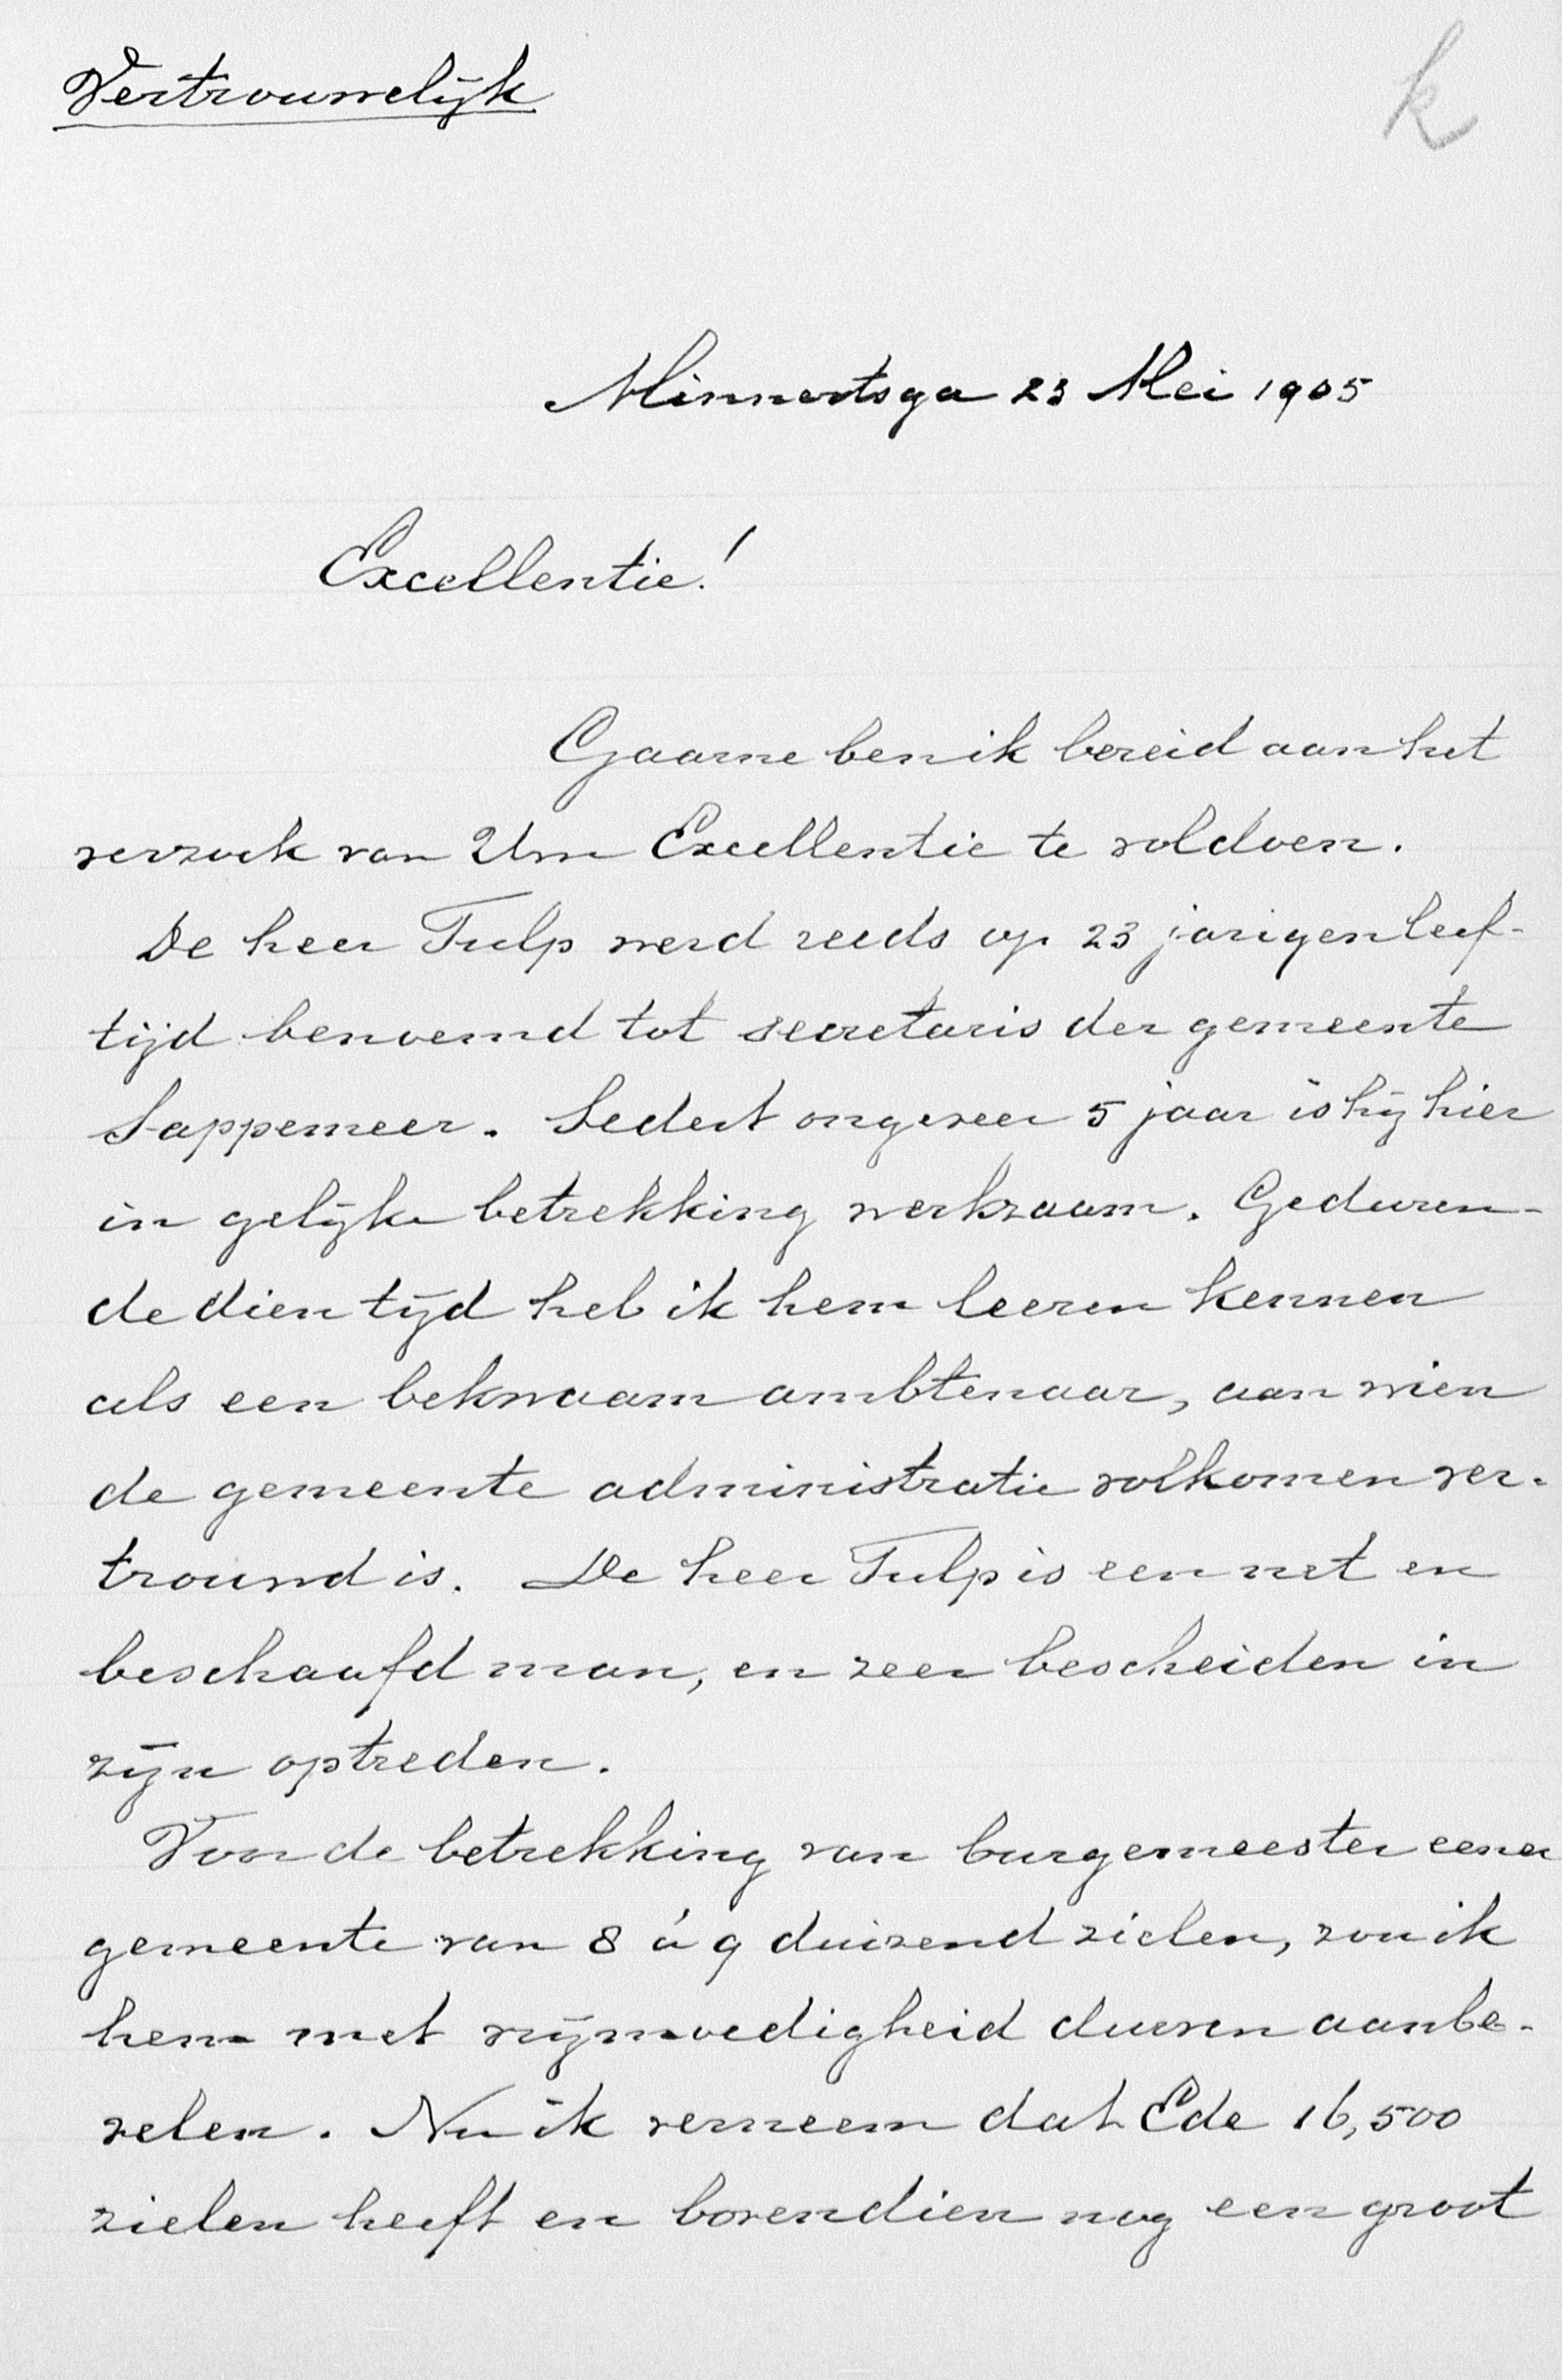 Vertrouwelijk
k
Minnertsga 23 Mei 1905
Excellentie!
Gaarne ben ik bereid aan het
verzoek van Uw Excellentie te voldoen.
De heer Tulp werd reeds op 23 jarigen leef-
tijd benoemd tot secretaris der gemeente
Sappemeer. Sedert ongeveer 5 jaar is hij hier
in gelijke betrekking werkzaam. Geduren-
de dien tijd heb ik hem leeren kennen
als een bekwaam ambtenaar, aan wien
de gemeente administratie volkomen ver-
trouwd is. De heer Tulp is een net en
beschaafd man, en zeer bescheiden in
zijn optreden.
Voor de betrekking van burgemeester eener
gemeente van 8 á 9 duizend zielen, zou ik
hem met vrijmoedigheid durven aanbe-
velen. Nu ik verneem dat Ede 16,500
zielen heeft en bovendien nog een groot